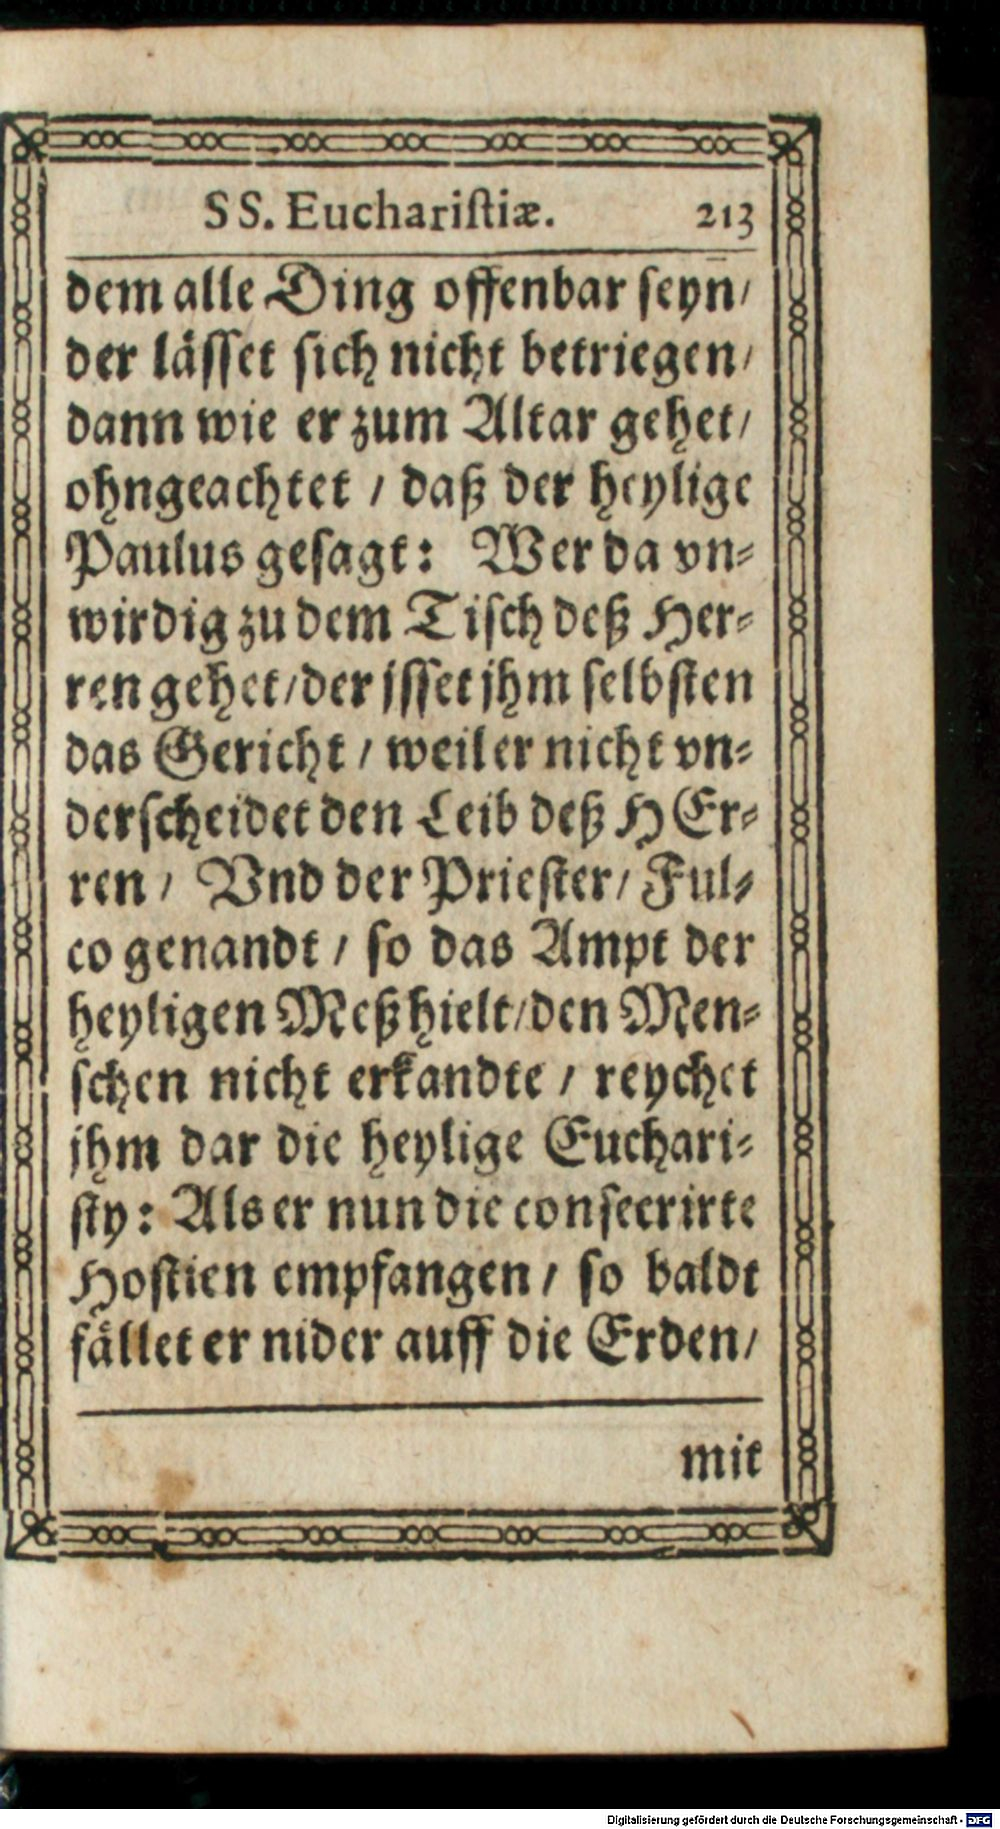 SS. Euchariſtiæ. 213
dem alle Ding offenbar ſeyn/
der laͤſſet ſich nicht betriegen/
dann wie er zum Altar gehet/
ohngeachtet / daß der heylige
Paulus geſagt: Wer da vn⸗
wirdig zu dem Tiſch deß Her⸗
ren gehet/der jſſet jhm ſelbſten
das Gericht / weil er nicht vn⸗
derſcheidet den Leib deß HEr⸗
ren / Vnd der Prieſter/ Ful⸗
co genandt / ſo das Ampt der
heyligen Meß hielt/den Men⸗
ſchen nicht erkandte / reychet
jhm dar die heylige Euchari⸗
ſty: Als er nun die conſecrirte
Hoſtien empfangen / ſo baldt
faͤllet er nider auff die Erden/
mit
Digitalisierung gefördert durch die Deutsche Forschungsgemeinschaft - DFG